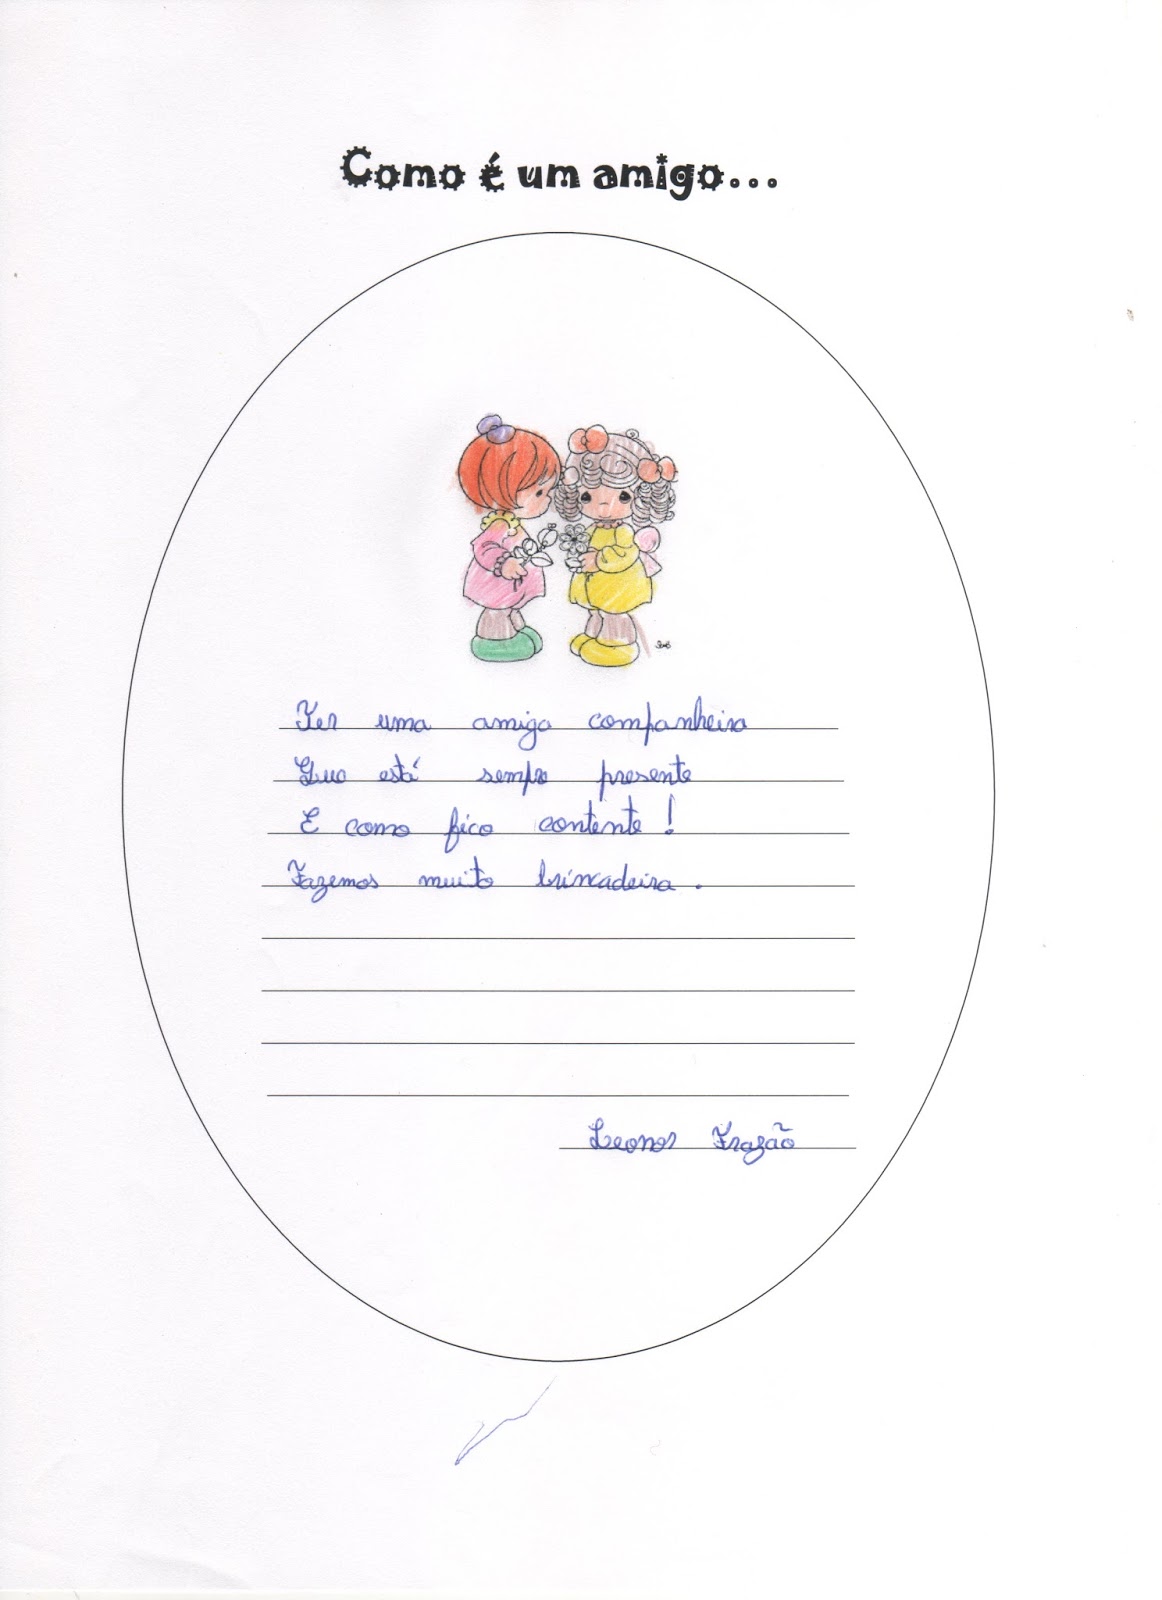 Como é um amigo...
Ter uma amiga companheira
Que está sempre presente
E como fico contente!
Fazemos muito brincadeira.
Leonor Frazão